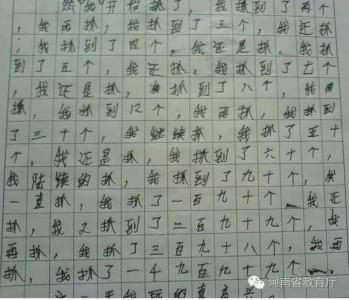 然"我"开始抓了，我抓到了两个
，我再抓，我抓到了三个，我还抓
，我抓到了四个，我还是抓，我抓
到了五个，我还抓，我抓到了七个
，我还是抓，我抓到了八个，我
抓，我抓到12个，我再抓，我抓到
了三十个，我继续抓，我抓了五十
个，我还是抓，我抓到了六十个，
我陆续的抓，我抓到了九十个，我
一直抓，我抓了一百九十个，我还
抓，我又抓到了二百九十九个，我
再抓，我抓了三百九十八个，我再
抓，我抓了一千九百九十九个，
河南省教育厅